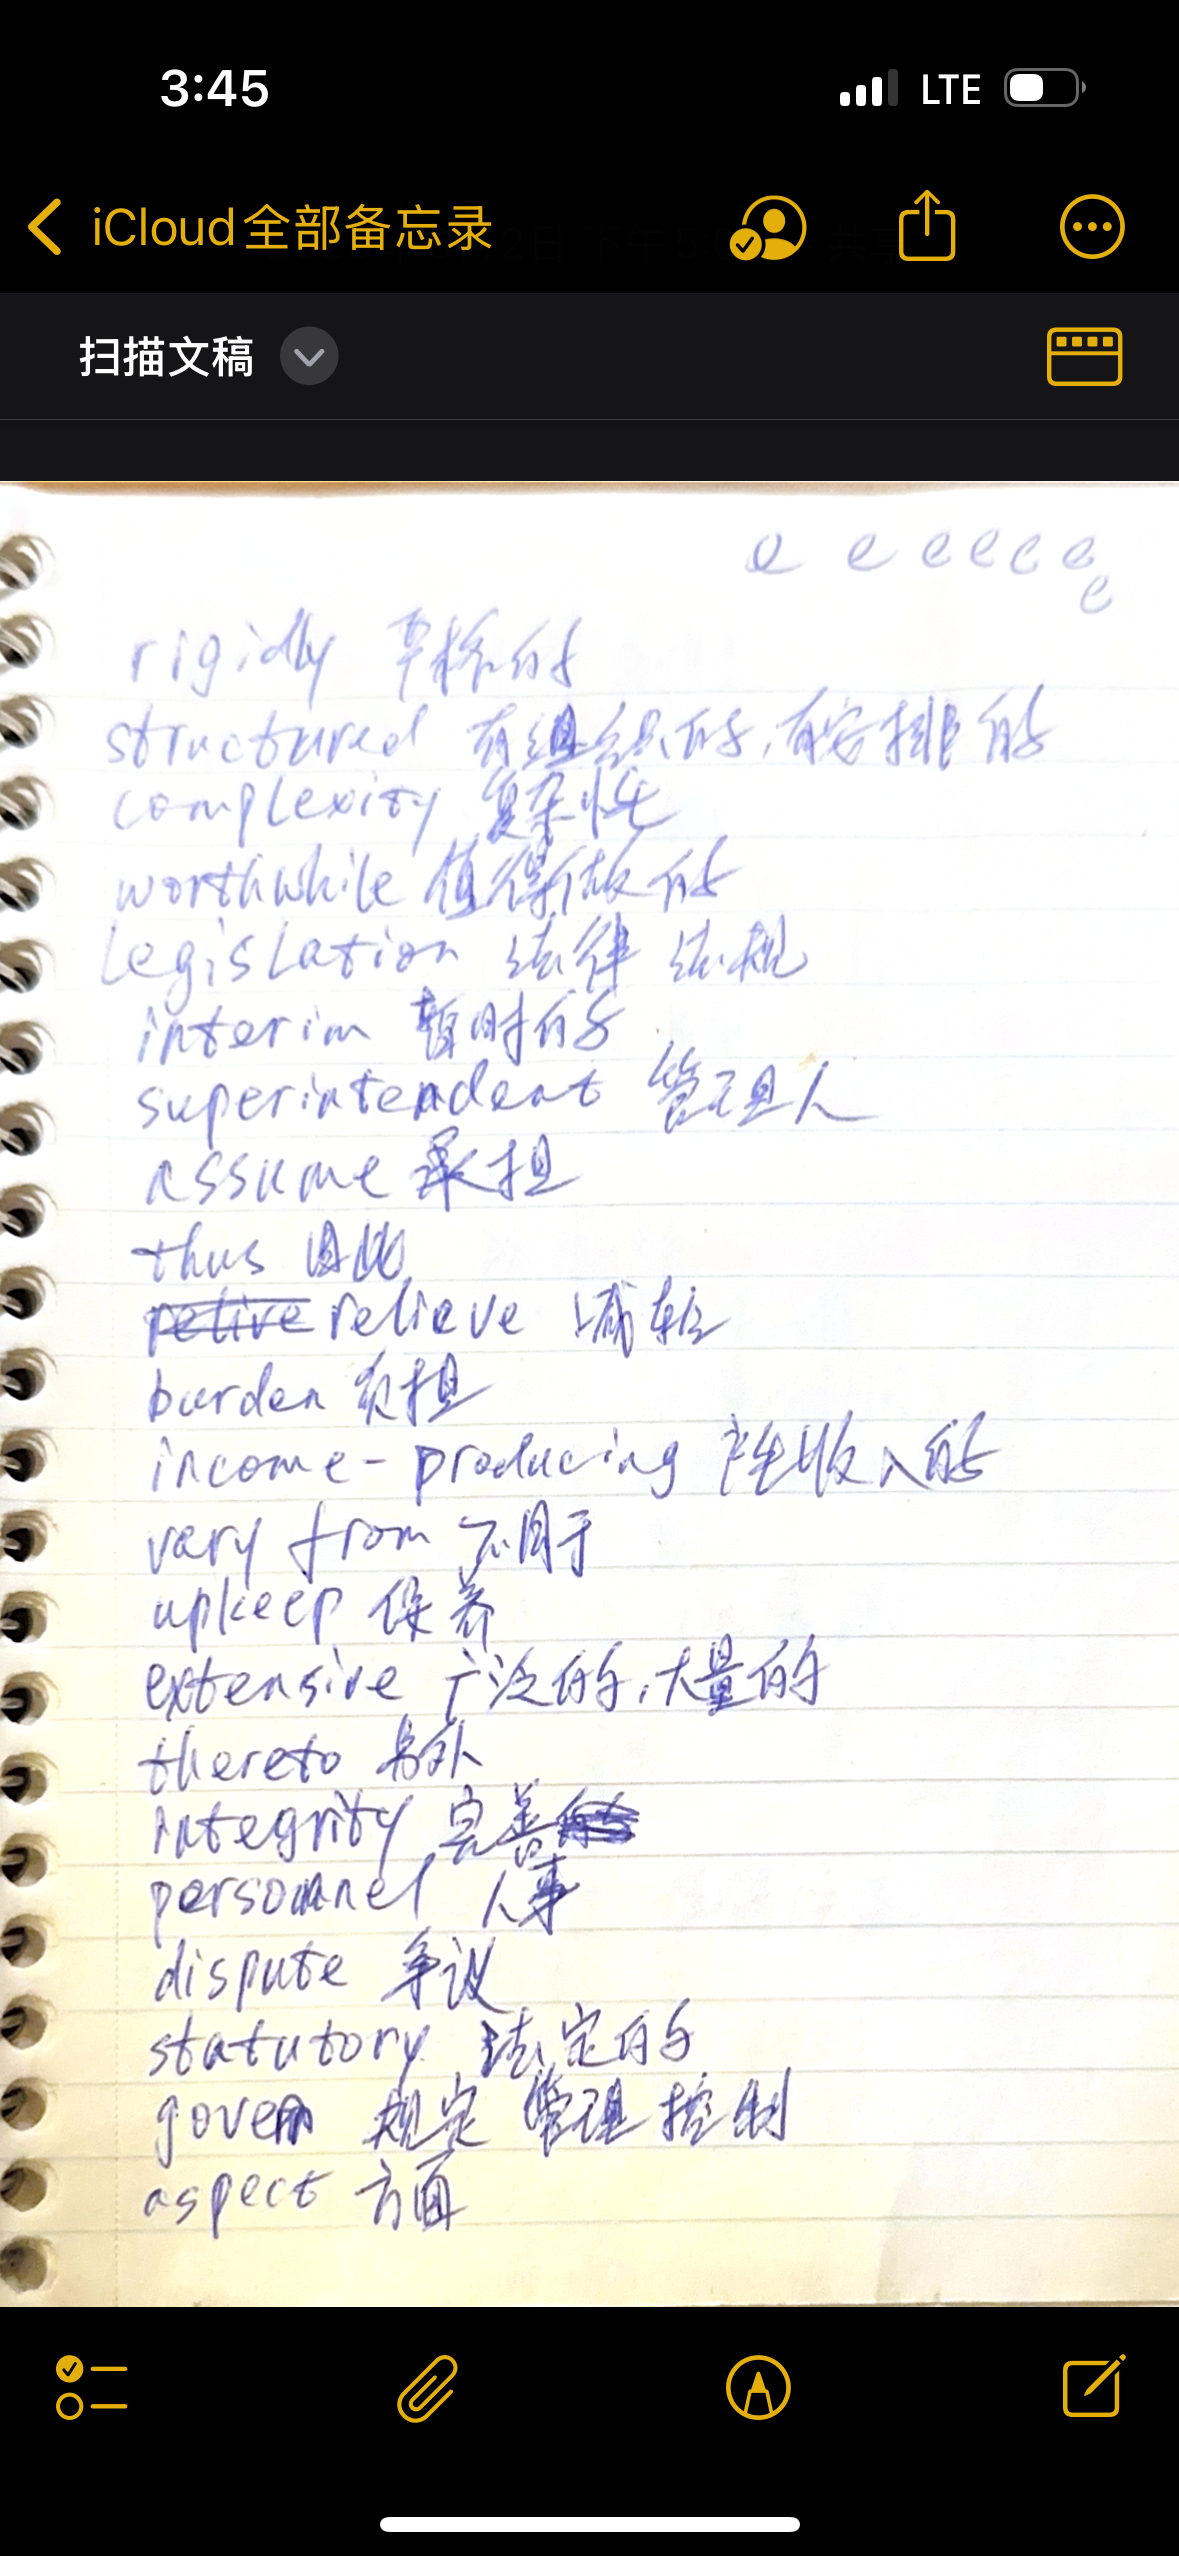 3:45 LTE
iCloud全部备忘录
扫描文稿
e e e e e e
e
rigidly 严格的
structured 有组织的,有安排的
complexity 复杂性
worthwhile 值得做的
legislation 法律 法规
interim 暂时的
superintendent 管理人
assume 承担
thus 因此
retire relieve 减轻
burden 负担
income-producing 产生收入的
vary from 不同于
upkeep 保养
extensive 广泛的,大量的
thereto 另外
integrity 完善
personnel 人事
dispute 争议
statutory 法定的
govern 规定 管理 控制
aspect 方面